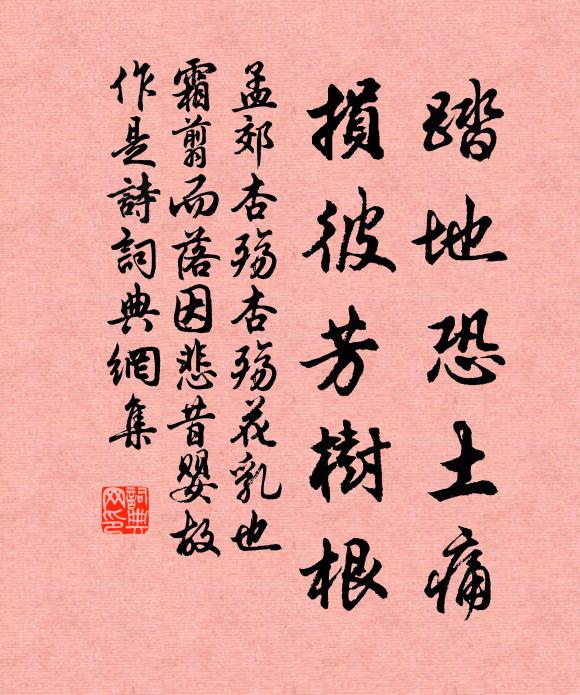 踏地恐土痛
損彼芳樹根
孟郊杏殤杏殤花乳也
霜翦而落因悲昔嬰故
作是詩詞典網集
詞典網印